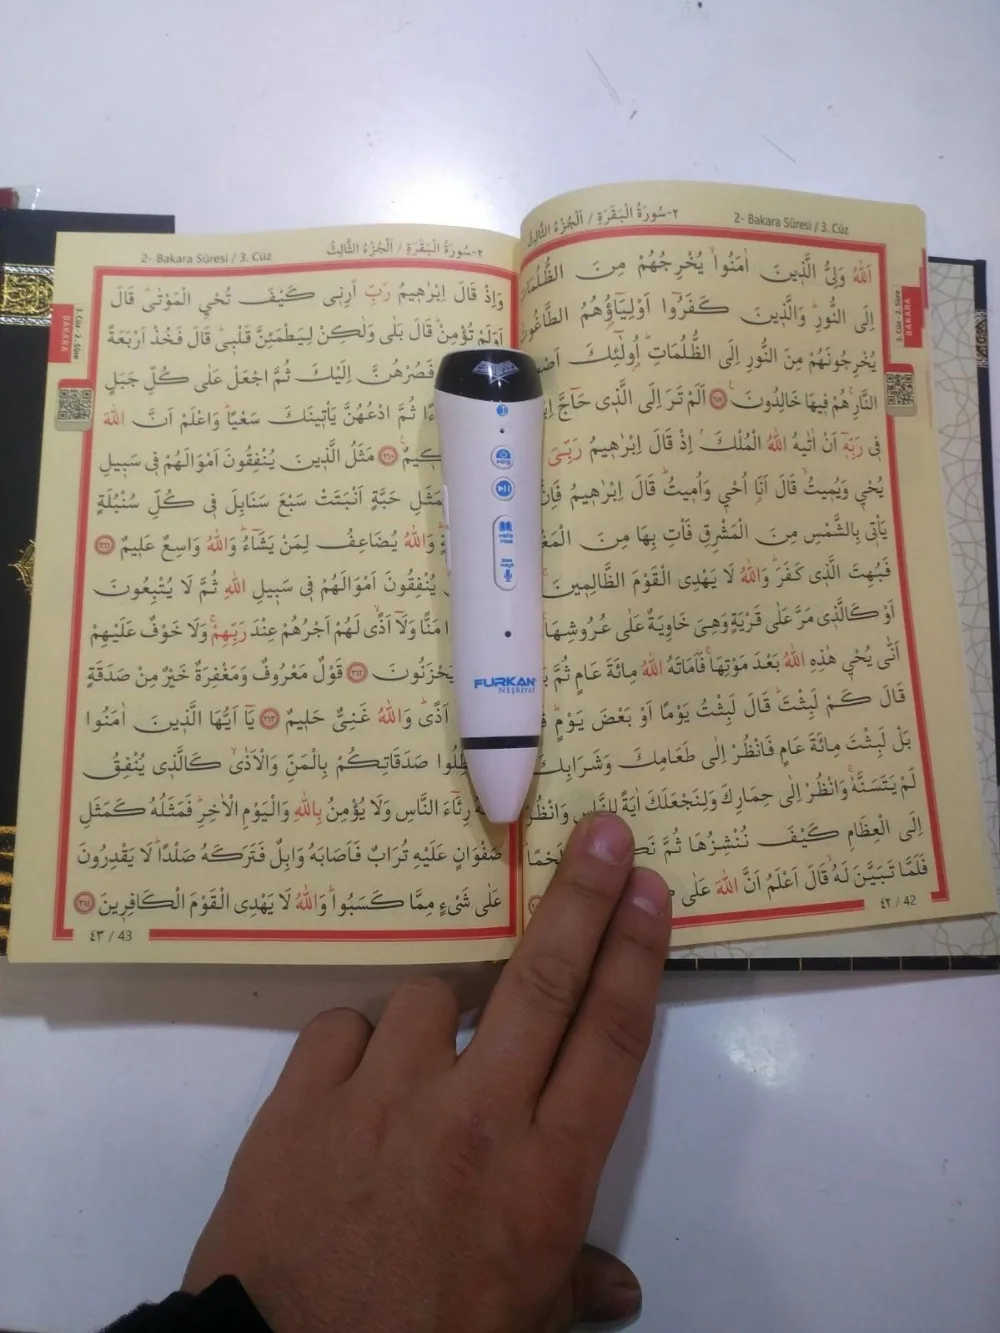 2- Bakara Sûresi / 3. Cüz
٢-سُورَةُ الْبَقَرَةِ / اَلْجُزْءُ الثَّالِثُ
اَللّٰهُ وَلِيُّ الَّذ۪ينَ اٰمَنُواۙ يُخْرِجُهُمْ مِنَ الظُّلُمَاتِ
اِلَى النُّورِۜ وَالَّذ۪ينَ كَفَرُٓوا اَوْلِيَٓاؤُ۬هُمُ الطَّاغُوتُۙ
يُخْرِجُونَهُمْ مِنَ النُّورِ اِلَى الظُّلُمَاتِۜ اُو۬لٰٓئِكَ
النَّارِۚ هُمْ ف۪يهَا خَالِدُونَ۟ ﴿٢٥٧﴾ اَلَمْ تَرَ اِلَى الَّذ۪ي حَٓاجَّ
ف۪ي رَبِّه۪ٓ اَنْ اٰتٰيهُ اللّٰهُ الْمُلْكَۢ اِذْ قَالَ اِبْرٰه۪يمُ رَبِّيَ
يُحْي۪ وَيُم۪يتُۙ قَالَ اَنَا۬ اُحْي۪ وَاُم۪يتُۜ قَالَ اِبْرٰه۪يمُ فَاِنَّ
يَأْت۪ي بِالشَّمْسِ مِنَ الْمَشْرِقِ فَأْتِ بِهَا مِنَ
فَبُهِتَ الَّذ۪ي كَفَرَۜ وَاللّٰهُ لَا يَهْدِي الْقَوْمَ الظَّالِم۪ينَۚ
اَوْ كَالَّذ۪ي مَرَّ عَلٰى قَرْيَةٍ وَهِيَ خَاوِيَةٌ عَلٰى عُرُوشِهَاۚ
اَنّٰى يُحْي۪ هٰذِهِ اللّٰهُ بَعْدَ مَوْتِهَاۚ فَاَمَاتَهُ اللّٰهُ مِائَةَ عَامٍ ثُمَّ
قَالَ كَمْ لَبِثْتَۜ قَالَ لَبِثْتُ يَوْمًا اَوْ بَعْضَ يَوْمٍۜ
بَلْ لَبِثْتَ مِائَةَ عَامٍ فَانْظُرْ اِلٰى طَعَامِكَ وَشَرَابِكَ
لَمْ يَتَسَنَّهْۚ وَانْظُرْ اِلٰى حِمَارِكَ وَلِنَجْعَلَكَ اٰيَةً لِلنَّاسِ وَانْظُرْ
اِلَى الْعِظَامِ كَيْفَ نُنْشِزُهَا ثُمَّ لَحْمًاۜ
فَلَمَّا تَبَيَّنَ لَهُۙ قَالَ اَعْلَمُ اَنَّ اللّٰهَ عَلٰى
٤٢ / 42
3. Cüz - 2. Sûre
BAKARA
2- Bakara Sûresi / 3. Cüz
٢-سُورَةُ الْبَقَرَةِ / اَلْجُزْءُ الثَّالِثُ
وَاِذْ قَالَ اِبْرٰه۪يمُ رَبِّ اَرِن۪ي كَيْفَ تُحْيِ الْمَوْتٰىۜ قَالَ
اَوَلَمْ تُؤْمِنْۜ قَالَ بَلٰى وَلٰكِنْ لِيَطْمَئِنَّ قَلْب۪يۜ قَالَ فَخُذْ اَرْبَعَةً
فَصُرْهُنَّ اِلَيْكَ ثُمَّ اجْعَلْ عَلٰى كُلِّ جَبَلٍ
ثُمَّ ادْعُهُنَّ يَأْت۪ينَكَ سَعْيًاۜ وَاعْلَمْ اَنَّ اللّٰهَ
﴿٢٦٠﴾ مَثَلُ الَّذ۪ينَ يُنْفِقُونَ اَمْوَالَهُمْ ف۪ي سَب۪يلِ
حَبَّةٍ اَنْبَتَتْ سَبْعَ سَنَابِلَ ف۪ي كُلِّ سُنْبُلَةٍ
وَاللّٰهُ يُضَاعِفُ لِمَنْ يَشَٓاءُۜ وَاللّٰهُ وَاسِعٌ عَل۪يمٌ ﴿٢٦١﴾
يُنْفِقُونَ اَمْوَالَهُمْ ف۪ي سَب۪يلِ اللّٰهِ ثُمَّ لَا يُتْبِعُونَ
مَنًّا وَلَٓا اَذًىۙ لَهُمْ اَجْرُهُمْ عِنْدَ رَبِّهِمْۚ وَلَا خَوْفٌ عَلَيْهِمْ
يَحْزَنُونَ ﴿٢٦٢﴾ قَوْلٌ مَعْرُوفٌ وَمَغْفِرَةٌ خَيْرٌ مِنْ صَدَقَةٍ
اَذًىۜ وَاللّٰهُ غَنِيٌّ حَل۪يمٌ ﴿٢٦٣﴾ يَٓا اَيُّهَا الَّذ۪ينَ اٰمَنُوا
صَدَقَاتِكُمْ بِالْمَنِّ وَالْاَذٰىۙ كَالَّذ۪ي يُنْفِقُ
رِئَٓاءَ النَّاسِ وَلَا يُؤْمِنُ بِاللّٰهِ وَالْيَوْمِ الْاٰخِرِۜ فَمَثَلُهُ كَمَثَلِ
صَفْوَانٍ عَلَيْهِ تُرَابٌ فَاَصَابَهُ وَابِلٌ فَتَرَكَهُ صَلْدًاۜ لَا يَقْدِرُونَ
عَلٰى شَيْءٍ مِمَّا كَسَبُواۜ وَاللّٰهُ لَا يَهْدِي الْقَوْمَ الْكَافِر۪ينَ ﴿٢٦٤﴾
٤٣ / 43
3. Cüz - 2. Sûre
BAKARA
FURKAN
NEŞRİYAT